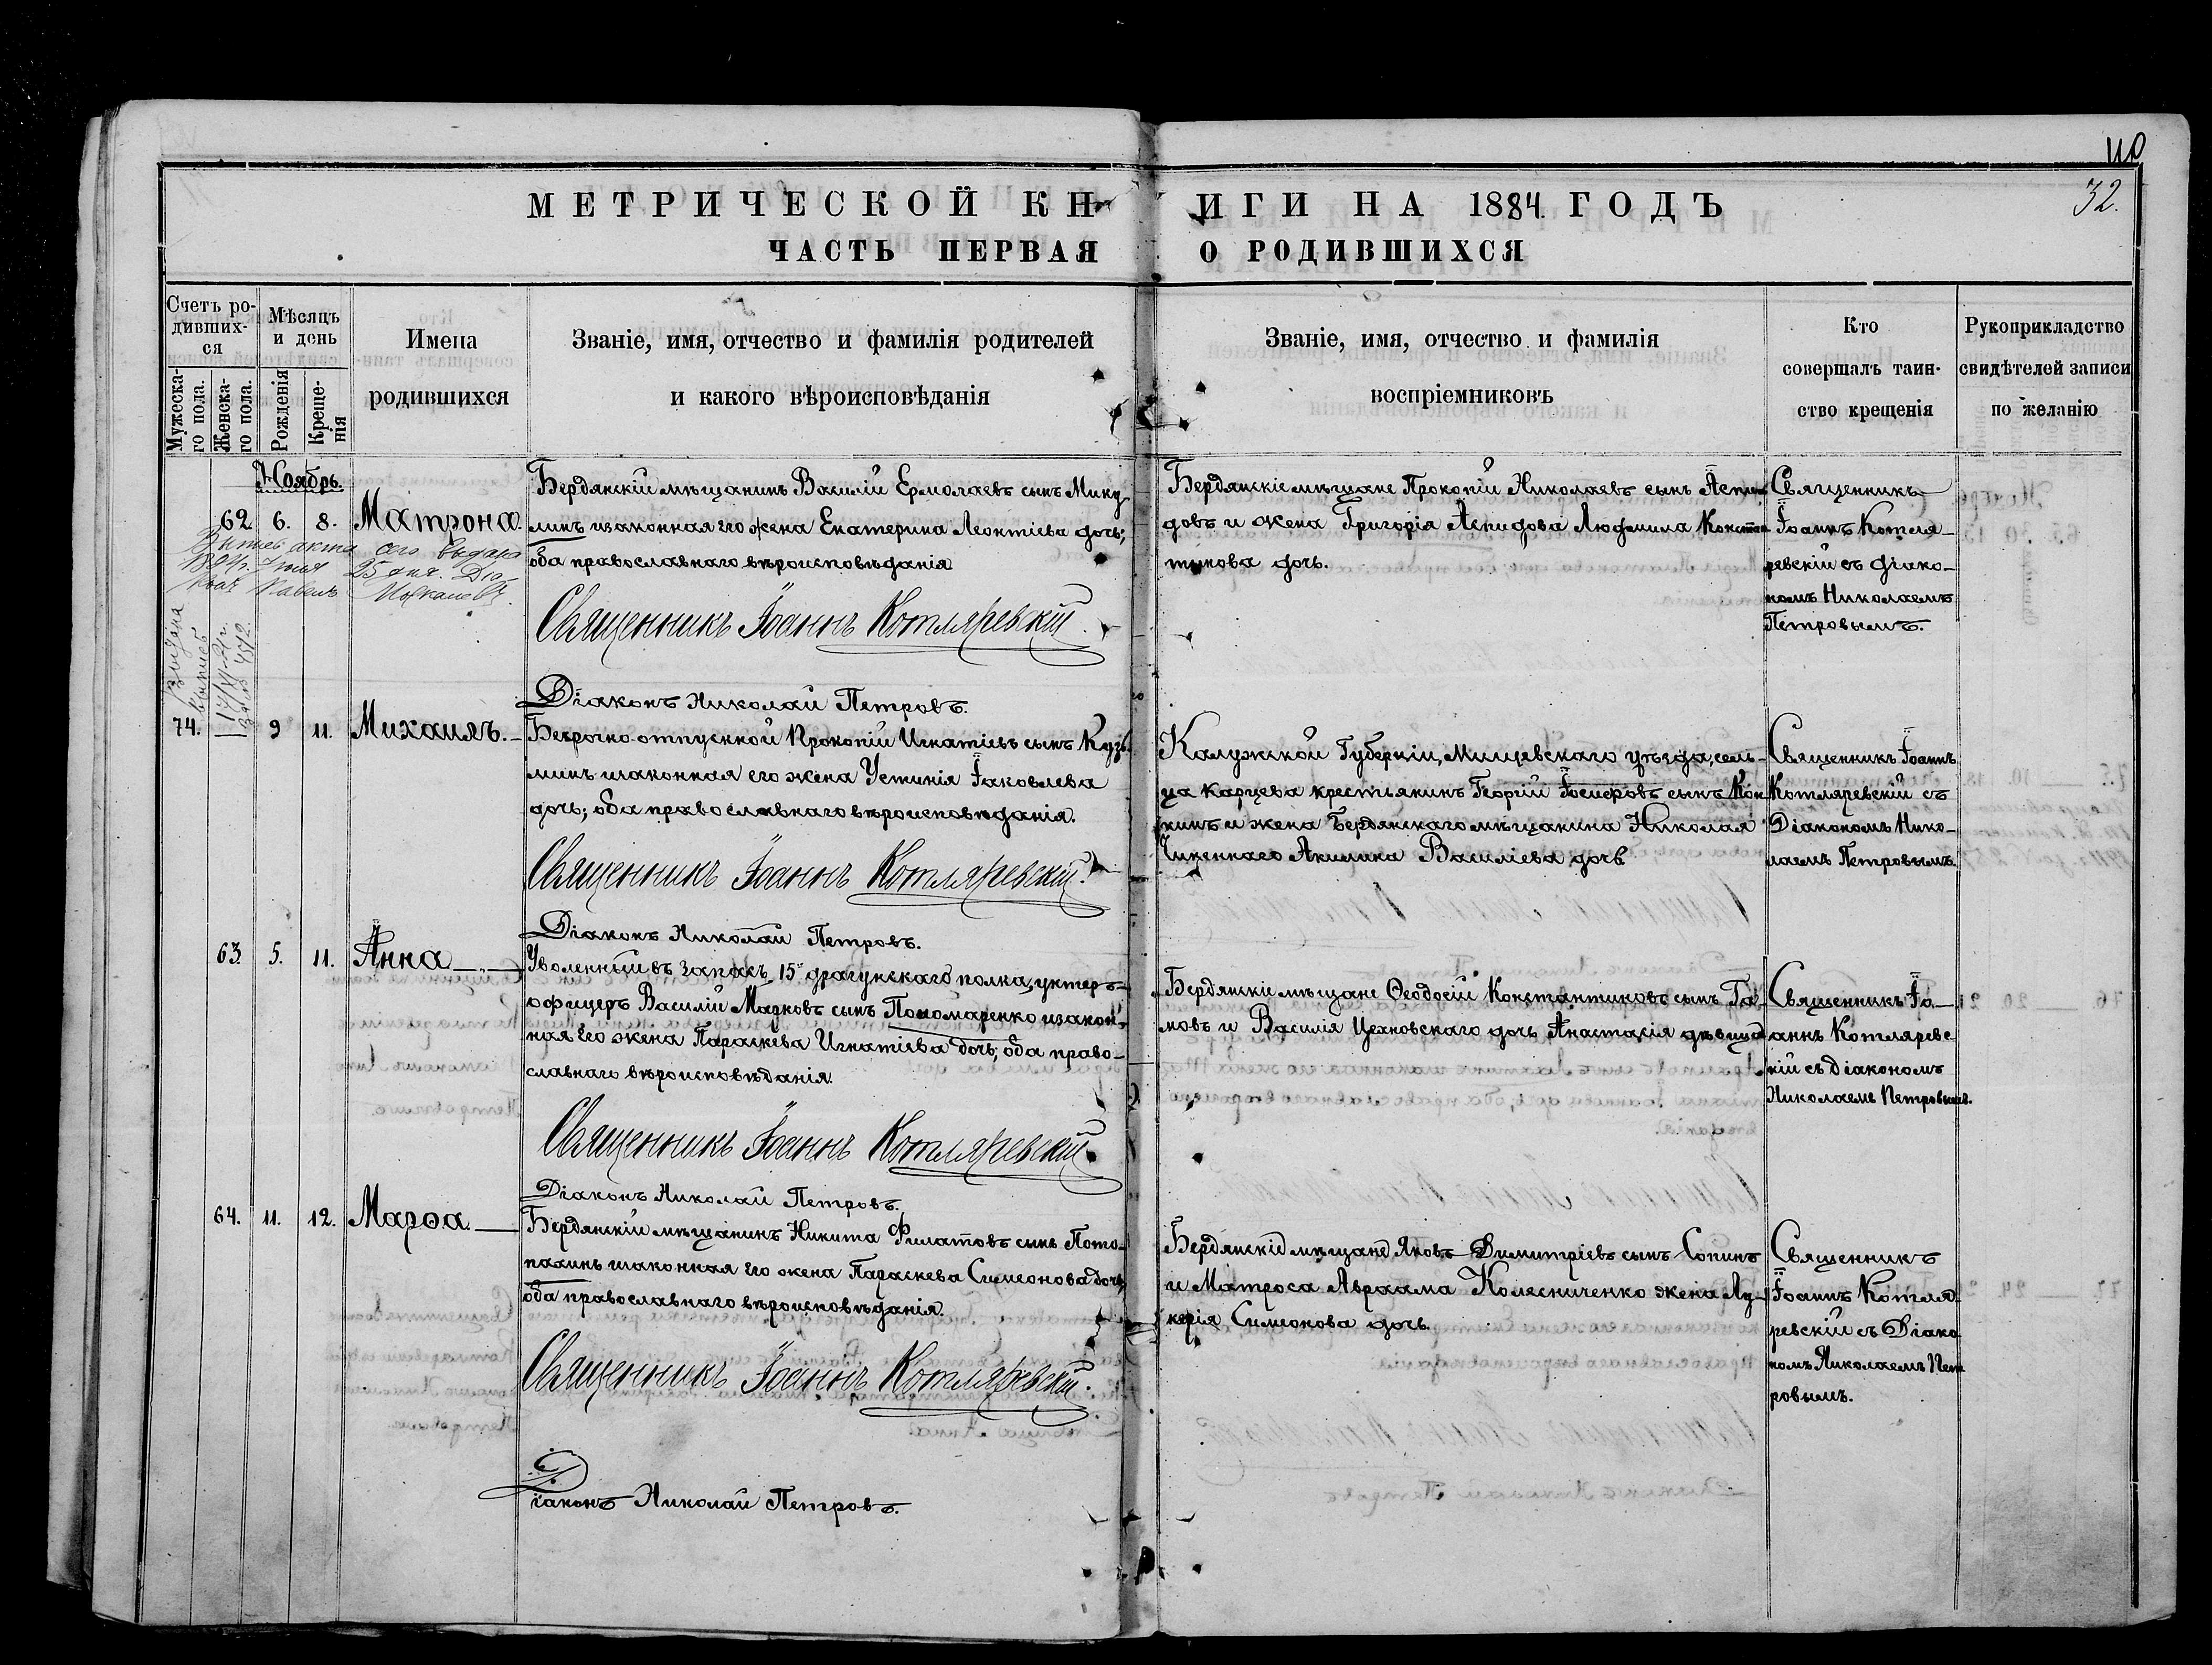 110
32.
МЕТРИЧЕСКОЙ КНИГИ НА 1884 ГОДЪ
ЧАСТЬ ПЕРВАЯ О РОДИВШИХСЯ
Счетъ родившихся
Мужеска-
го пола.
Женска-
го пола.
Мѣсяцъ
и день
Рожденія
Креще-
нія
Имена
родившихся
Званіе, имя, отчество и фамилія родителей
и какого вѣроисповѣданія
Званіе, имя, отчество и фамилія
воспріемниковъ
Кто
совершалъ таин-
ство крещенія
Рукоприкладство
свидѣтелей записи
по желанію
Ноябрь.
62 6. 8. Матрона.
акта сего выдана
25
Павелъ
Бердянскій мѣщанинъ Василій Ермолаевъ сынъ Мику
линъ изаконная его жена Екатерина Леонтіева дочь;
оба православнаго вѣроисповѣданія
Священникъ Іоаннъ Котляревскій.
Діаконъ Николай Петровъ.
Бердянскіе мѣщане Прокопій Николаевъ сынъ Аспи
довъ и жена Григорія Аспидова Людмила Констан
тинова дочь.
Священникъ
Іоаннъ Котля-
ревскій съ діако-
номъ Николаемъ
Петровымъ.
Выдана
74. 9 11. Михаилъ.
Безсрочно-отпускной Прокопій Игнатіевъ сынъ Кузь
минъ изаконная его жена Устинія Іаковлева
дочь; оба православнаго вѣроисповѣданія.
Священникъ Іоаннъ Котляревскій.
Діаконъ Николай Петровъ.
Калужской Губерніи, Мищевскаго уѣзда, сель-
ца Карцева крестьянинъ Георгій Іосифовъ сынъ
и жена Бердянскаго мѣщанина Николая
Акилина Василіева дочь
Священникъ Іоаннъ
Котляревскій съ
Діакономъ Нико-
лаемъ Петровымъ.
63. 5. 11. Анна
Уволенный въ запасъ 15го драгунскаго полка, унтеръ-
офицеръ Василій Марковъ сынъ Пономаренко изакон-
ная Его жена Параскева Игнатіева дочь; оба право-
славнаго вѣроисповѣданія.
Священникъ Іоаннъ Котляревскій.
Діаконъ Николай Петровъ.
Бердянскіе мѣщане Ѳеодосій Константиновъ сынъ Га-
новъ и Василія Цехновскаго дочь Анастасія дѣвица
Священникъ Іо-
аннъ Котляревс-
кій съ діакономъ
Николаемъ Петровымъ.
64. 11. 12. Марѳа.
Бердянскій мѣщанинъ Никита Филатовъ сынъ Пото-
палинъ изаконная его жена Параскева Симеонова дочь;
оба православнаго вѣроисповѣданія.
Священникъ Іоаннъ Котляревскій.
Діаконъ Николай Петровъ.
Бердянскій мѣщане Яковъ Димитріевъ сынъ Сопинъ
и Матроса Авраама Колесниченко жена Лу-
керія Симеонова дочь.
Священникъ
Іоаннъ Котля-
ревскій съ Діако
номъ Николаемъ Пет
ровымъ.